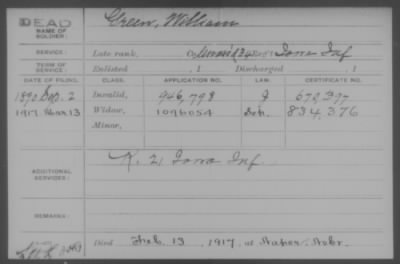 DEAD
NAME OF SOLDIER:
Green, William
SERVICE:
Late rank, Co Reg't Iowa Inf
TERM OF SERVICE:
Enlisted , 1 Discharged , 1
DATE OF FILING. CLASS. APPLICATION NO. LAW. CERTIFICATE NO.
1890 Sep. 2 Invalid, 946,798 J 672,397
1917 Mar 13 Widow, 1096054 834,376
Minor,
ADDITIONAL SERVICES:
K. 21 Iowa Inf
REMARKS:
Died Feb. 13, 1917, at Naper, Nebr.